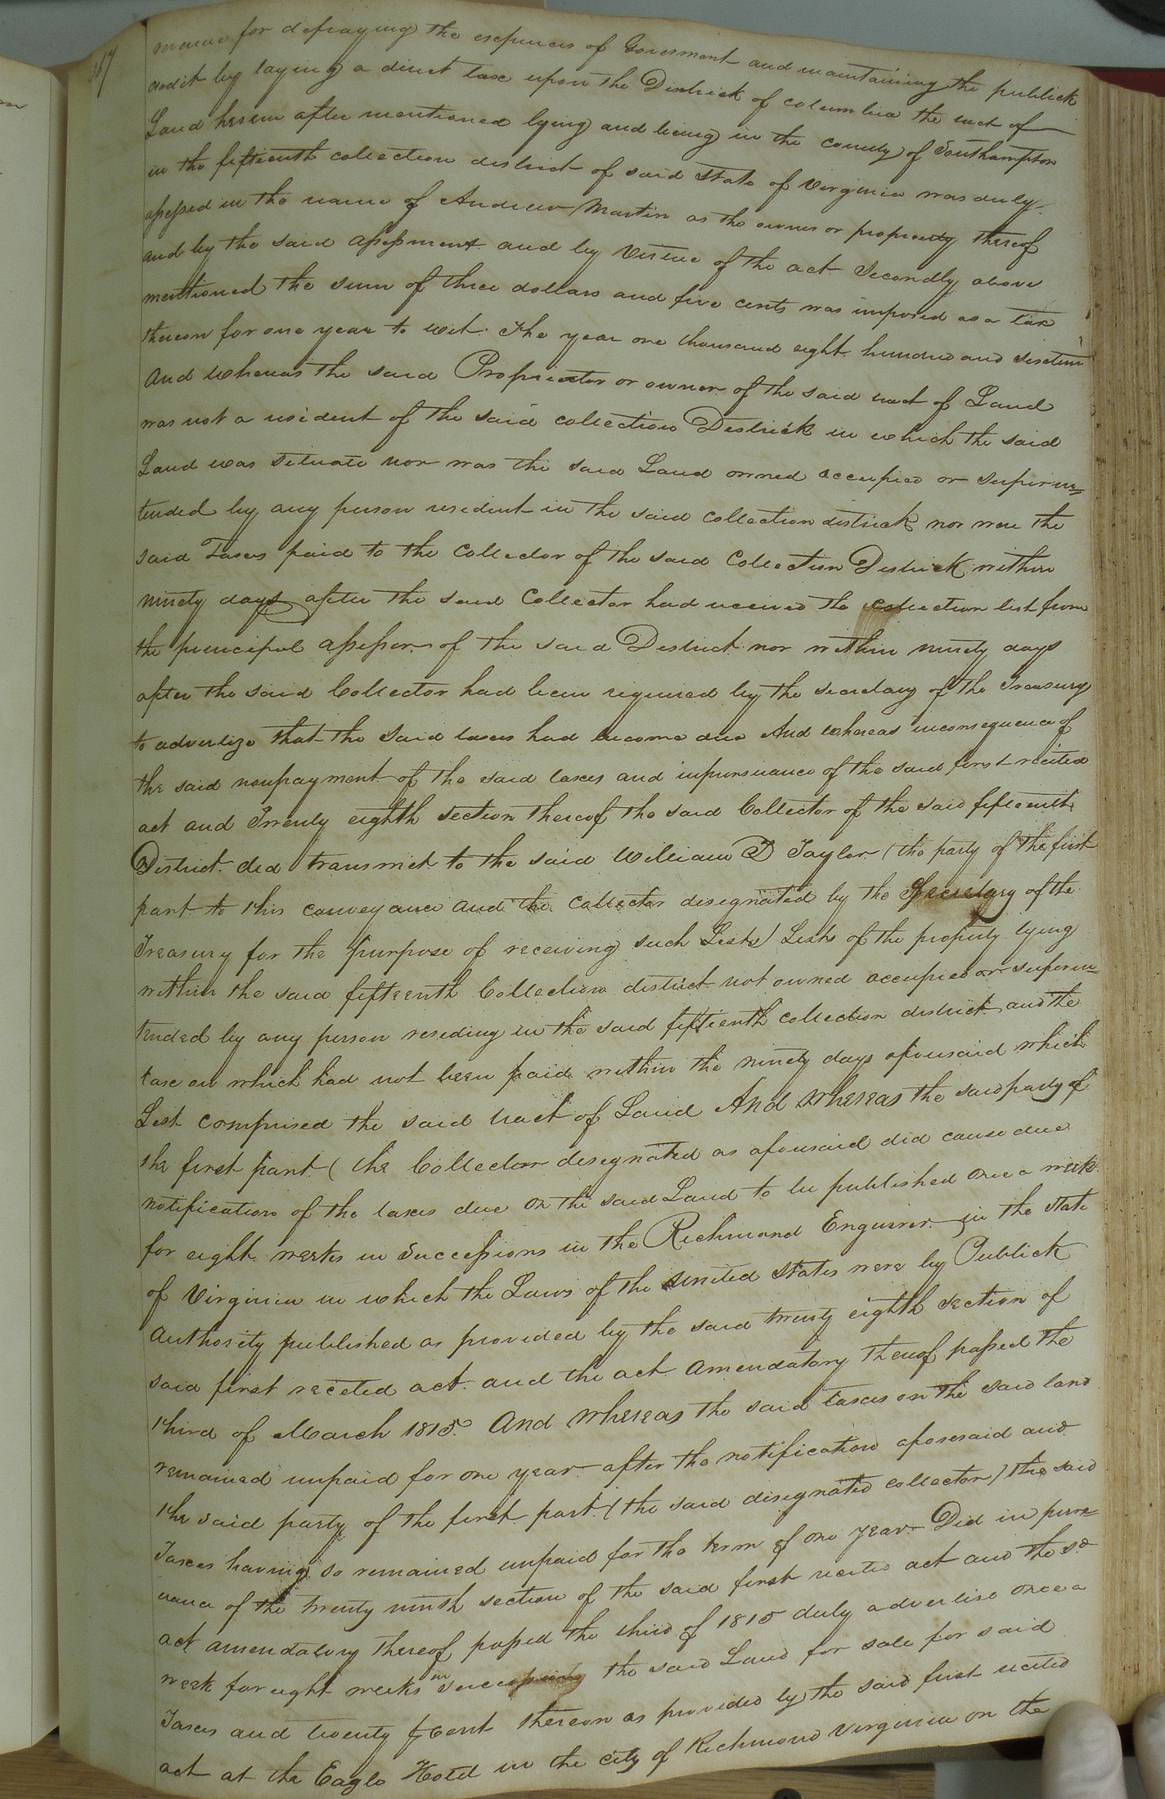 367
for defraying the expences of Goverment and maintaining the publick
credit by laying a direct taxe upon the Districk of columbia the tract of
Land herein after mentioned lying and being in the county of Southampton
in the fifteenth collection district of said State of Virginia was duly
assessed in the name of Andrew Martin as the owner or propriety thereof
and by the said assessment and by Virtue of the act Secondly above
mentioned the sum of three dollars and five cents was imposed as a tax
thereon for one year to wit. The year one thousand eight hundred and sixteen
And whereas the said Proprieter or owner of the said tract of Land
was not a resident of the said collection Districk in which the said
Land was situate nor was the said Land owned occupied or superin=
tended by any person resident in the said collection districk nor were the
said Taxes paid to the Collector of the said Collection Districk within
ninety days after the said Collector had received the collection list from
the principal assessor of the said District nor within ninety days
after the said Collector had been required by the secretary of the Treasury
to advertize that the said taxes had become due And whereas inconsequence of
the said nonpayment of the said taxes and inpursuance of the said first recited
act and Twenty eighth section thereof the said Collector of the said fifteenth
District did transmit to the said William D Taylor (the party of the first
part to this conveyance and the collector designated by the Secretary of the
Treasury for the purpose of receiving such Lists) Lists of the property lying
within the said fifteenth Collection district not owned occupied or superin=
tended by any person residing in the said fifteenth collection district and the
taxe on which had not been paid within the ninety days aforesaid which
List comprised the said tract of Land And whereas the said party of
the first part (the Collector designated as aforesaid did cause due
notification of the taxes due on the said Land to be published once a week
for eight weeks in Successions in the Richmond Enquirer in the state
of Virginia in which the Laws of the united states were by Publick
authority published as provided by the said twenty eighth section of
said first receted act and the act amendatory thereof passed the
third of March 1815. And whereas the said taxes on the said land
remained unpaid for one year after the notification aforesaid and
the said party of the first part (the said designated collector) the said
Taxes having so remained unpaid for the term of one year Did in purs=
uance of the twenty ninth section of the said first recited act and the sd
act amendatory thereof passed the third of 1815 duly advertise once a
week for eight weeks in the said Land for sale for said
Taxes and twenty cent thereon as provided by the said first recited
act at the Eagle Hotel in the city of Richmond Virginia on the